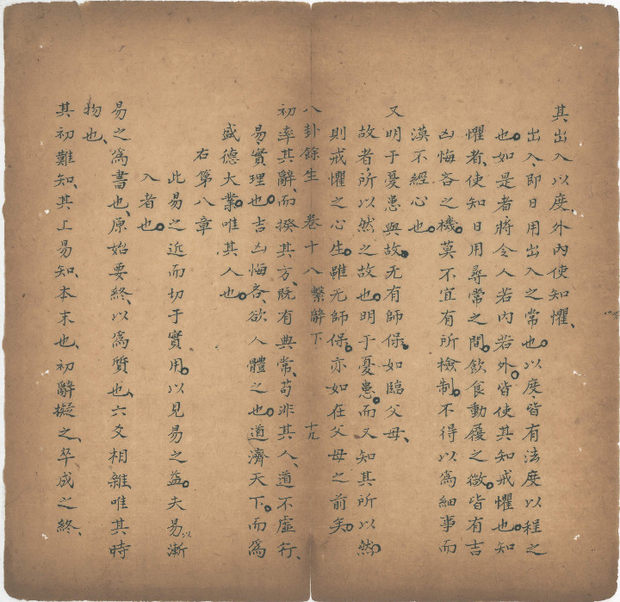 其出入以度外內使知懼、
出入、即日用出入之常也。以度、皆有法度以程之
也。如是者將令人若內若外。皆使其知戒懼也。知
懼者、使知日用尋常之間。飲食動履之微。皆有吉
凶悔吝之機。莫不宜有所檢制。不得以為細事而
漠不經心也。
又明于憂患與故。无有師保。如臨父母、
故者。所以然之故也。明于憂患。而又知其所以然。
則戒懼之心生。雖无師保。亦如在父母之前矣。
八卦餘生 卷十八 繫辭下 十九
初率其辭、而揆其方、既有典常、苟非其人、道不虛行、
易。實理也。吉凶悔吝、欲人體之也。道濟天下。而為
盛德大業。唯其人也。
右第八章
此易之近而切于實用。以見易之益。夫易以漸
入者也。
易之為書也、原始要終、以為質也、六爻相雜唯其時
物也、
其初難知、其上易知、本末也、初辭擬之、卒成之終、